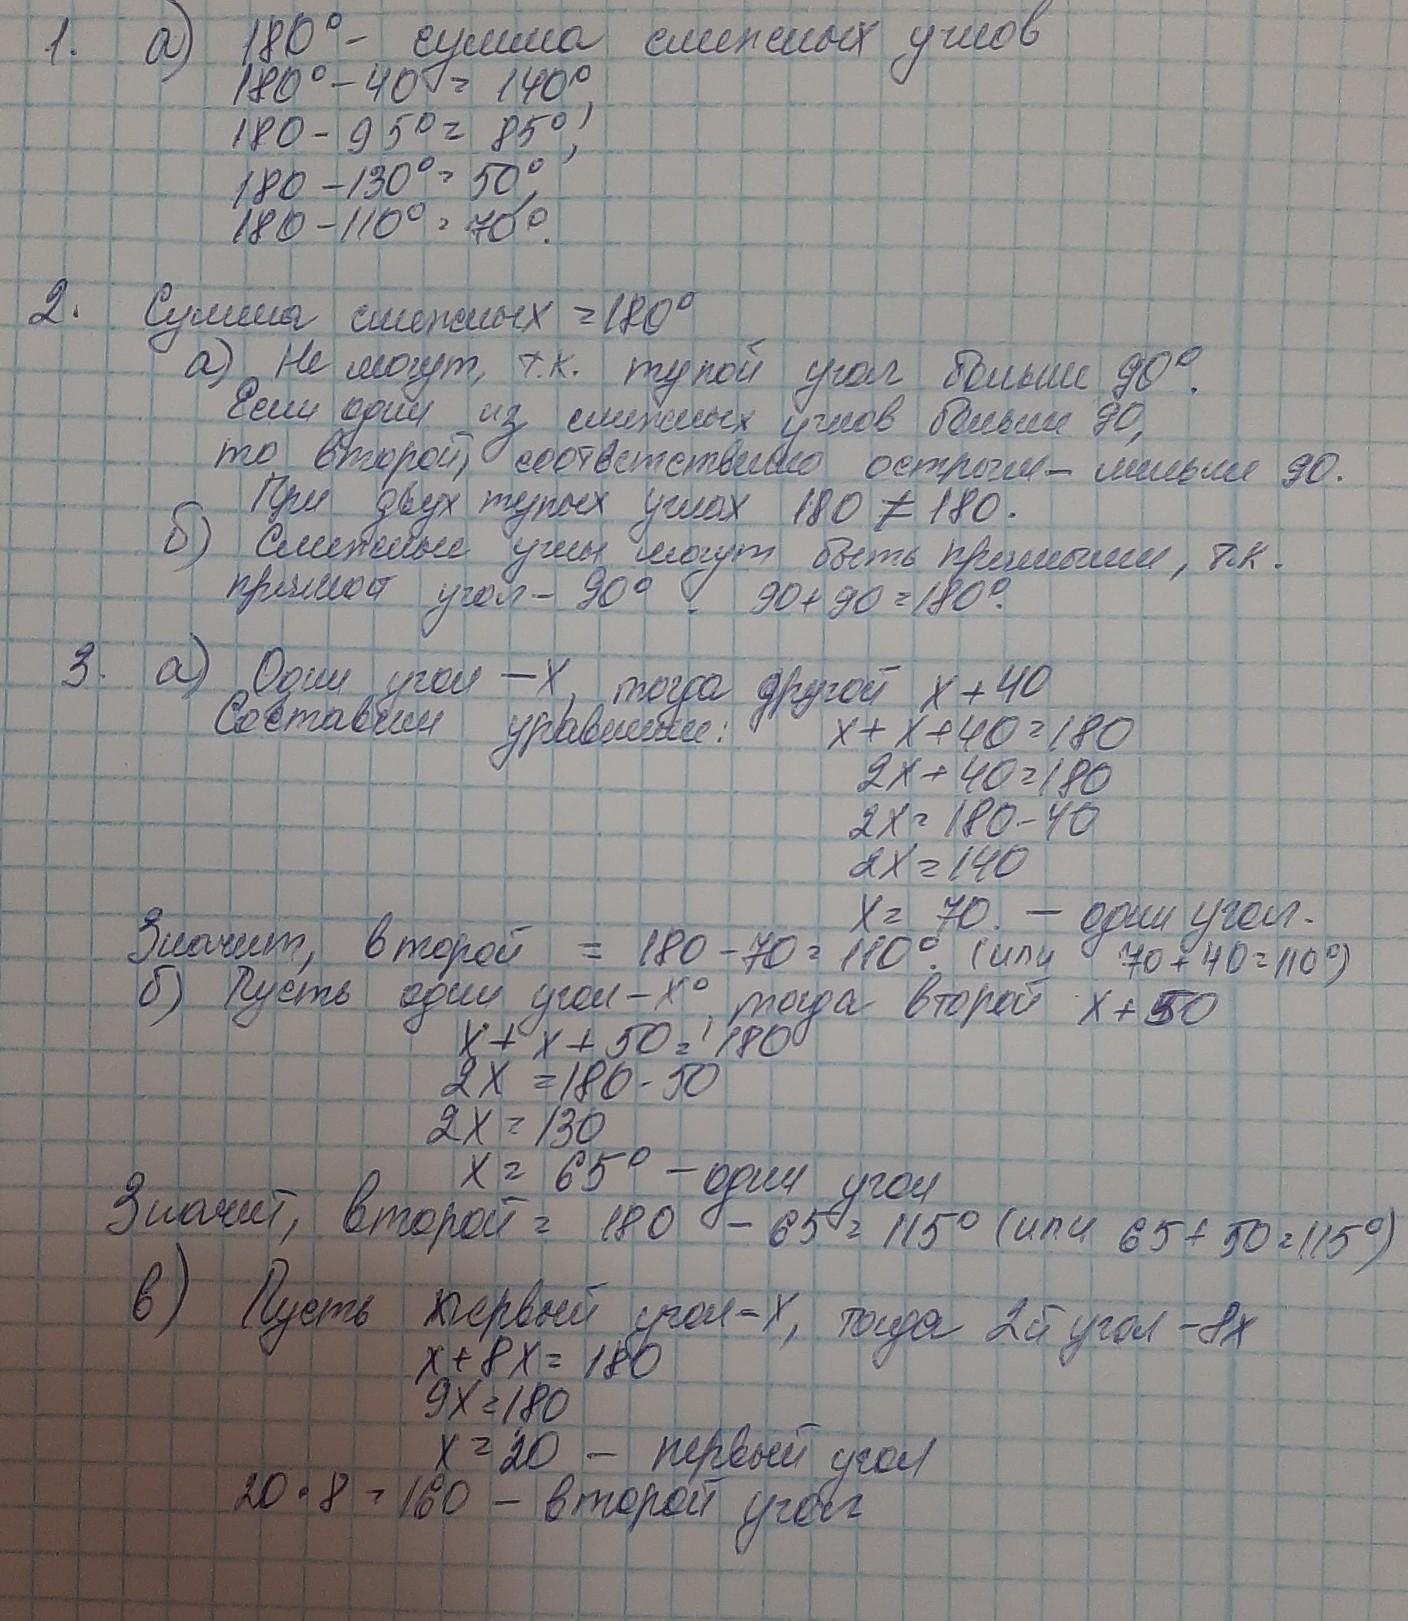 1. а) 180° - сумма смежных углов
180° - 40 = 140°,
180 - 95° = 85°;
180 - 130° = 50°,
180 - 110° = 70°.
2. Сумма смежных = 180°
а) Не могут, т.к. тупой угол больше 90°.
Если один из смежных углов больше 90,
то второй, соответственно острый - меньше 90.
При двух тупых углах 180 ≠ 180.
б) Смежные углы могут быть прямыми, т.к.
прямой угол - 90°. 90+90=180°.
3. а) Один угол - x, тогда другой x + 40
Составим уравнение: x + x + 40 = 180
2x + 40 = 180
2x = 180 - 40
2x = 140
x = 70. - один угол.
Значит, второй = 180 - 70 = 110°. (или 70 + 40 = 110°)
б) Пусть один угол - x°, тогда второй x + 50
x + x + 50 = 180
2x = 180 - 50
2x = 130
x = 65° - один угол
Значит, второй = 180 - 65 = 115° (или 65 + 50 = 115°)
в) Пусть первый угол - x, тогда 2й угол - 8x
x + 8x = 180
9x = 180
x = 20 - первый угол
20 · 8 = 160 - второй угол